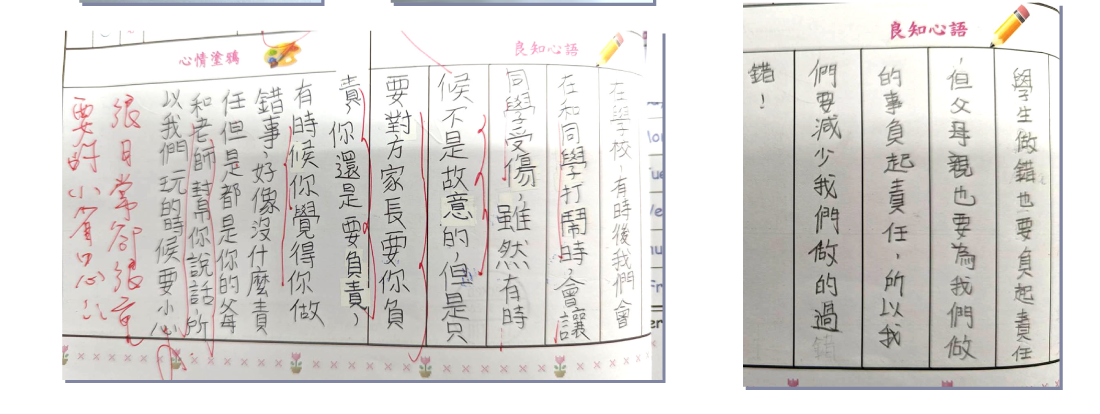 良知心語
在學校，有時後我們會
在和同學打鬧時，會讓
同學受傷，雖然有時
候不是故意的，但是只
要對方家長要你負
責，你還是要負責，
心情塗鴉
有時候你覺得你做
錯事，好像沒什麼責
任但是都是你的爸
和老師幫你說話所
以我們玩的時候要小心
很日常卻很重
要的小省思
良知心語
學生做錯也要負起責任
，但父母親也要為我們做
的事負起責任，所以我
們要減少我們做的過
錯！